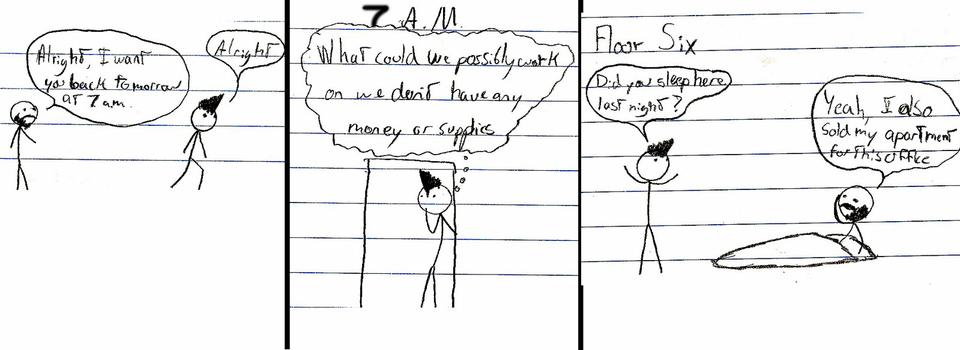 Alright, I want
you back tomorrow
at 7am.
Alright
7 A.M.
What could we possibly work
on we don't have any
money or supplies
Floor Six
Did you sleep here
last night?
Yeah, I also
sold my apartment
for this office